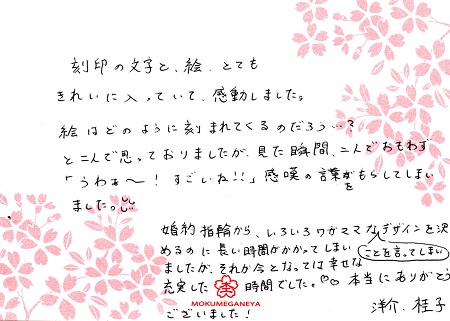 刻印の文字と、絵、とても
きれいに入っていて、感動しました。
絵はどのように刻まれてくるのだろう…?
と二人で思っておりましたが、見た瞬間、二人でおもわず
「うわぁ〜!すごいね!!」感嘆の言葉をもらしてしまい
ました。
婚約指輪から、いろいろワガママなデザインを決
めるのに長い時間がかかってしまい
ことを言ってしまい
ましたが、それが今となっては幸せな
充実した時間でした。♡♡本当にありがとう
ございました!
MOKUMEGANEYA
洋介、桂子